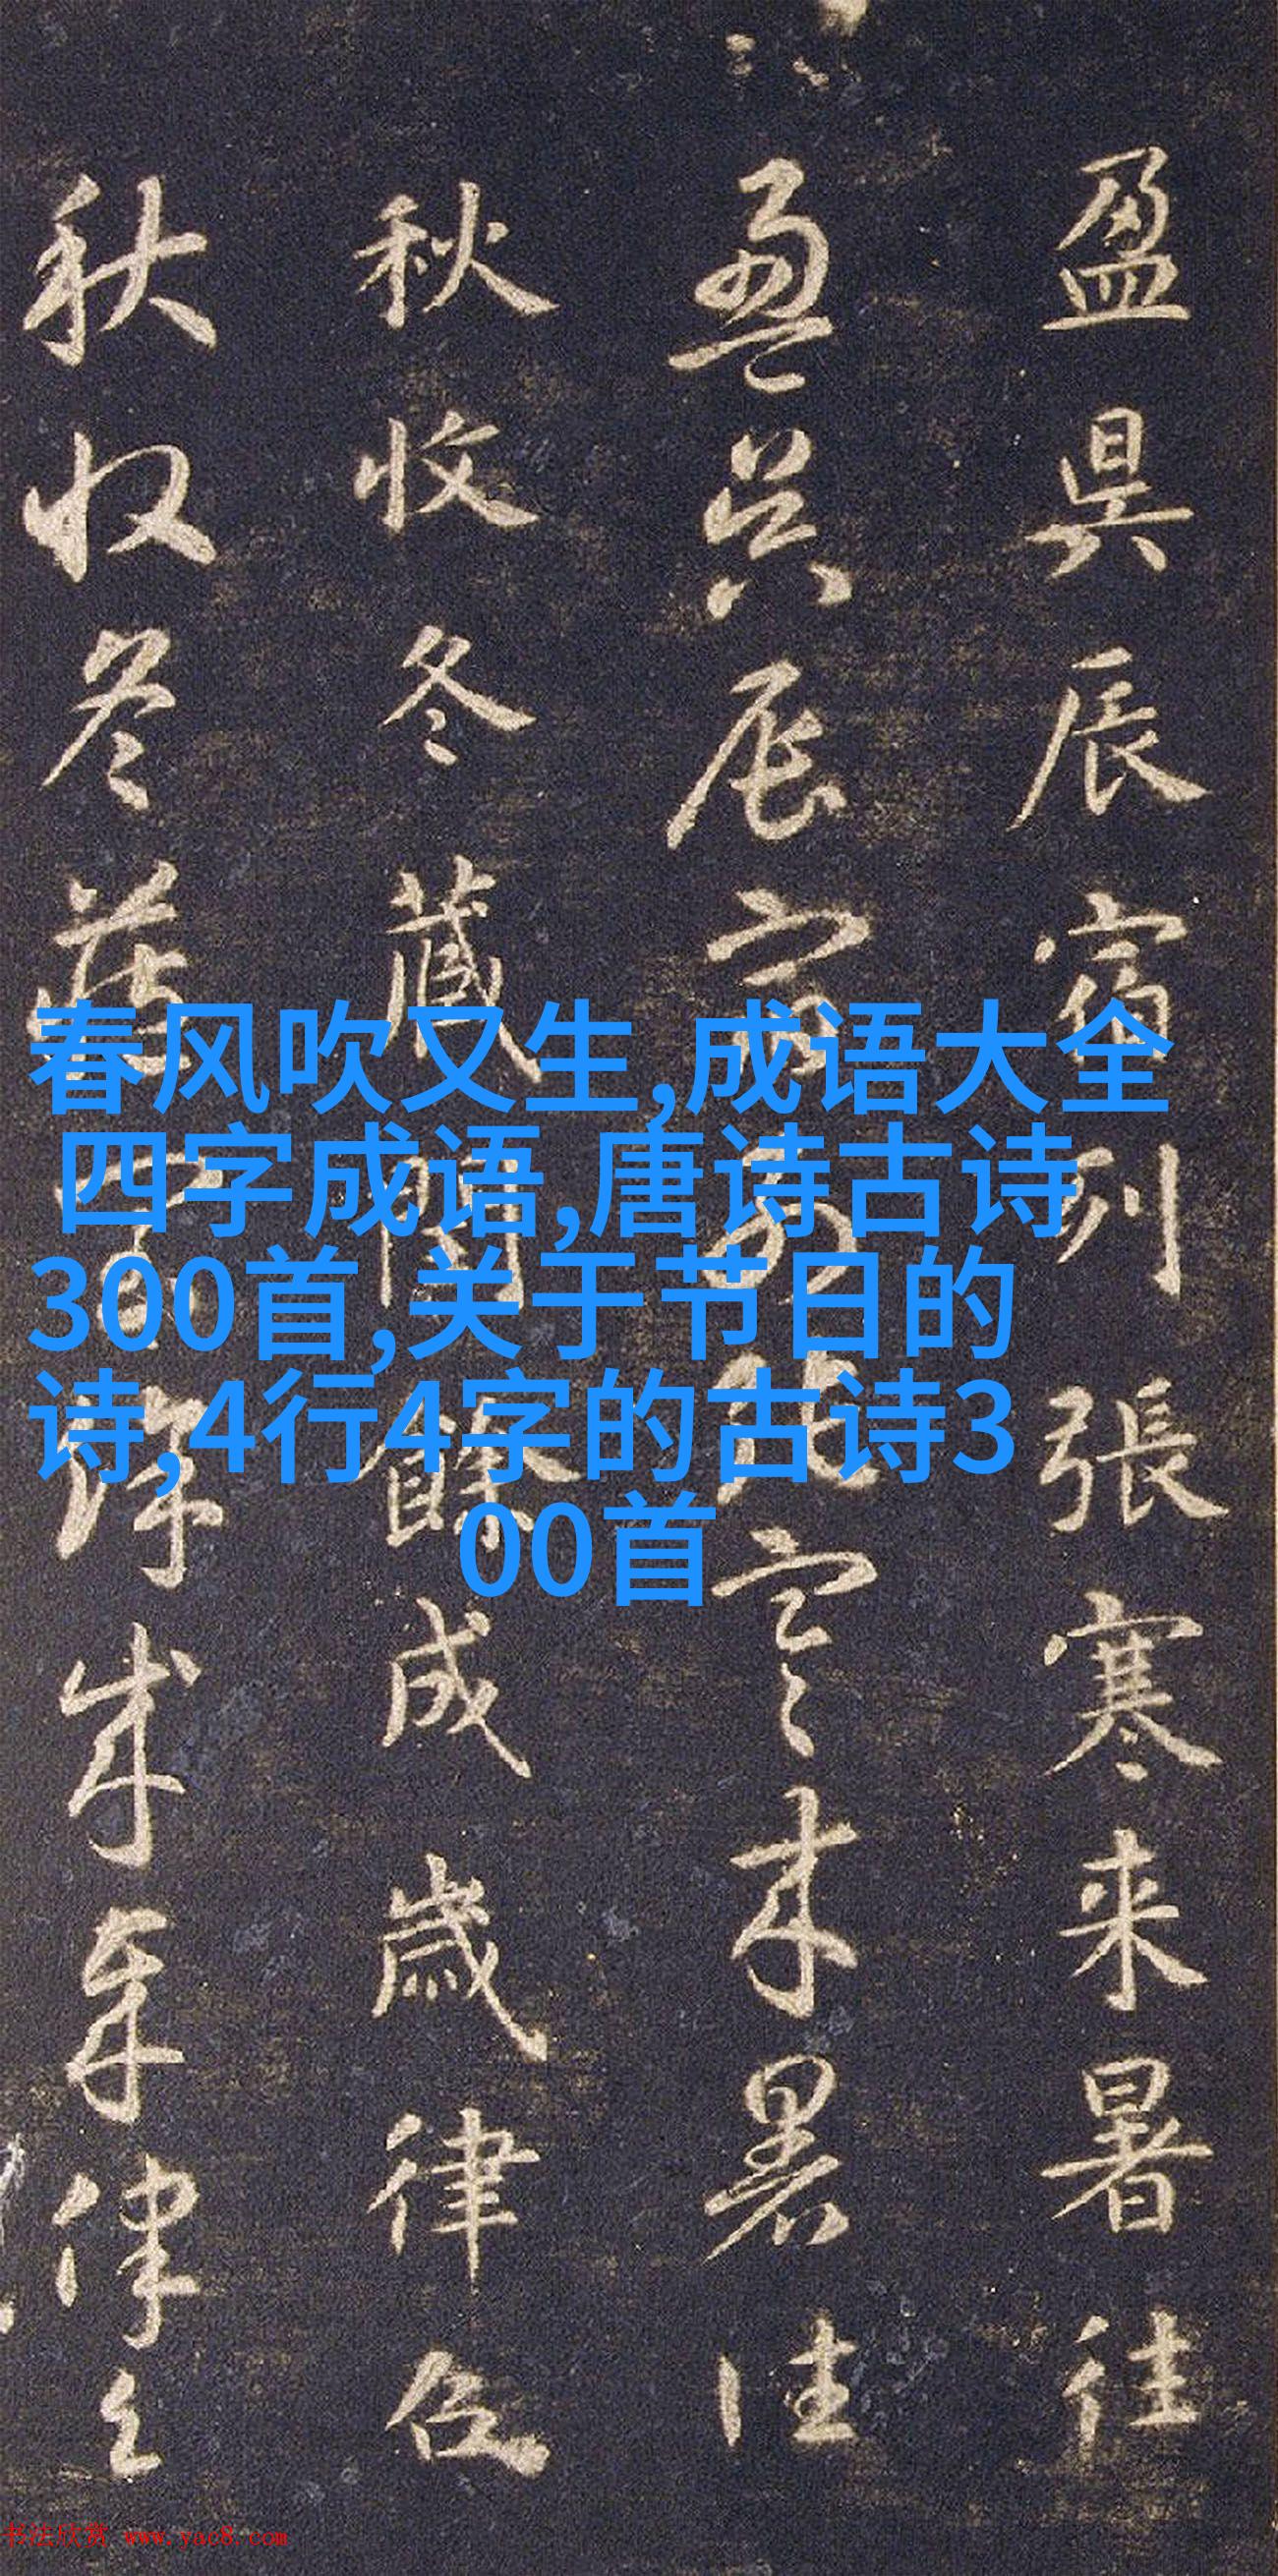 盈昃辰宿列張寒来暑往
盈昃辰宿列張寒来暑往
秋收冬蔵閏餘成歲律召
秋收冬藏閏餘成歲律召
春风吹又生,成语大全
四字成语,唐诗古诗
300首,关于节日的
诗,4行4字的古诗3
00首
书法欣赏 www.yac8.com